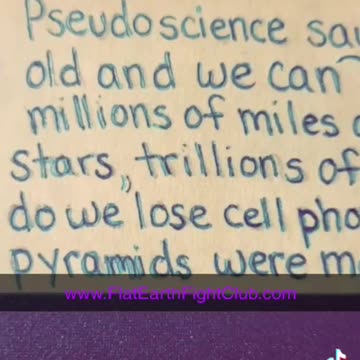 Pseudoscience say
old and we can
millions of miles
stars,, trillions of
do we lose cell pho
pyramids were m
www.FlatEarthFightClub.com